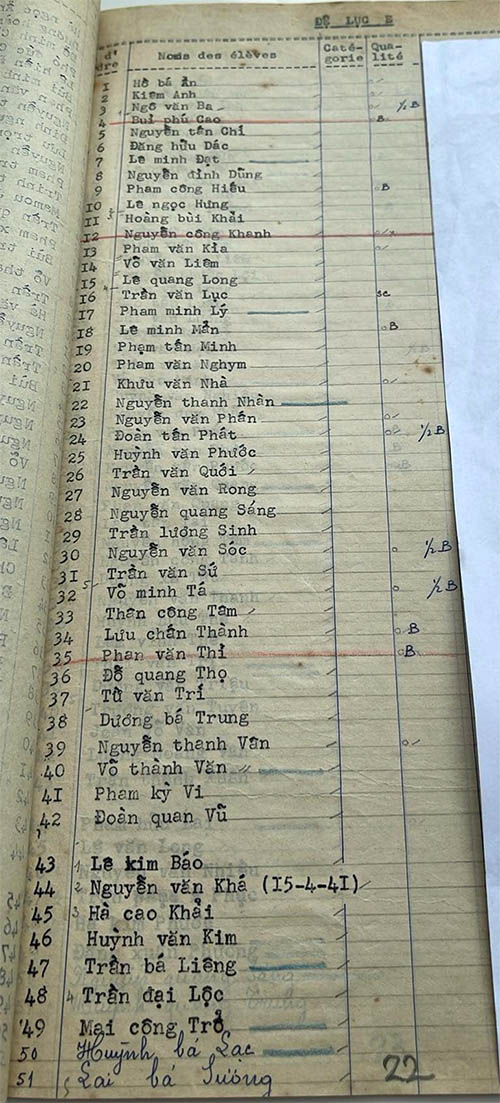 ĐỆ LỤC E
d'ordre Noms des élèves Catégorie Qualité
1 Hồ bá Ẩn
2 Kiêm Anh
3 Ngô văn Ba ½ B
4 Bùi phú Cao B
5 Nguyễn tấn Chí
6 Đăng hữu Dác
7 Lê minh Đạt
8 Nguyễn đình Dũng
9 Phạm công Hiếu B
10 Lê ngọc Hưng
11 Hoàng bùi Khải
12 Nguyễn công Khanh
13 Phạm văn Kia
14 Võ văn Liêm
15 Lê quang Long
16 Trần văn Lục sc
17 Phạm minh Lý
18 Lê minh Mẫn B
19 Phạm tấn Minh
20 Phạm văn Nghym
21 Khưu văn Nhà
22 Nguyễn thanh Nhàn
23 Nguyễn văn Phấn
24 Đoàn tấn Phát ½ B
25 Huỳnh văn Phước
26 Trần văn Quới
27 Nguyễn văn Rong
28 Nguyễn quang Sáng
29 Trần lương Sinh
30 Nguyễn văn Sóc ½ B
31 Trần văn Sứ
32 5 Võ minh Tá ½ B
33 Thân công Tâm
34 Lưu chấn Thành B
35 Phan văn Thi B
36 Đỗ quang Thọ
37 Từ văn Trí
38 Dương bá Trung
39 Nguyễn thanh Vân
40 Võ thành Văn
41 Phạm kỳ Vi
42 Đoàn quan Vũ
43 1 Lê kim Báo
44 2 Nguyễn văn Khá (15-4-41)
45 3 Hà cao Khải
46 Huỳnh văn Kim
47 Trần bá Liêng
48 4 Trần đại Lộc
49 Mai công Trổ
50 Huỳnh bá Lạc
51 5 Lai bá Sương
22